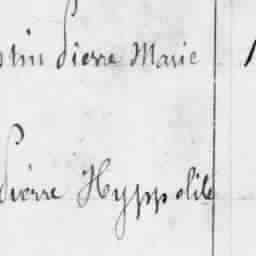 Pierre Marie
Pierre Hyppolite